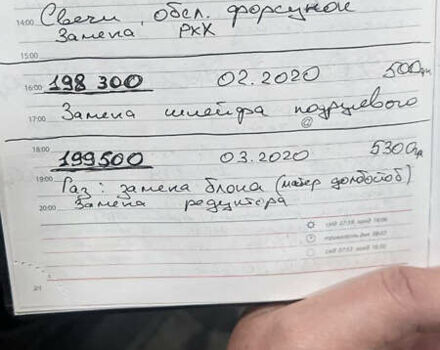 14:00 Свечи, обсл. форсунок
Замена РКХ
15:00
16:00 198 300 02.2020 500грн
17:00 Замена шлейфа подрулевого
@
18:00 199500 03.2020 5300гр
19:00 Газ: замена блока (матер долбоёоб)
20:00 Замена редуктора
21